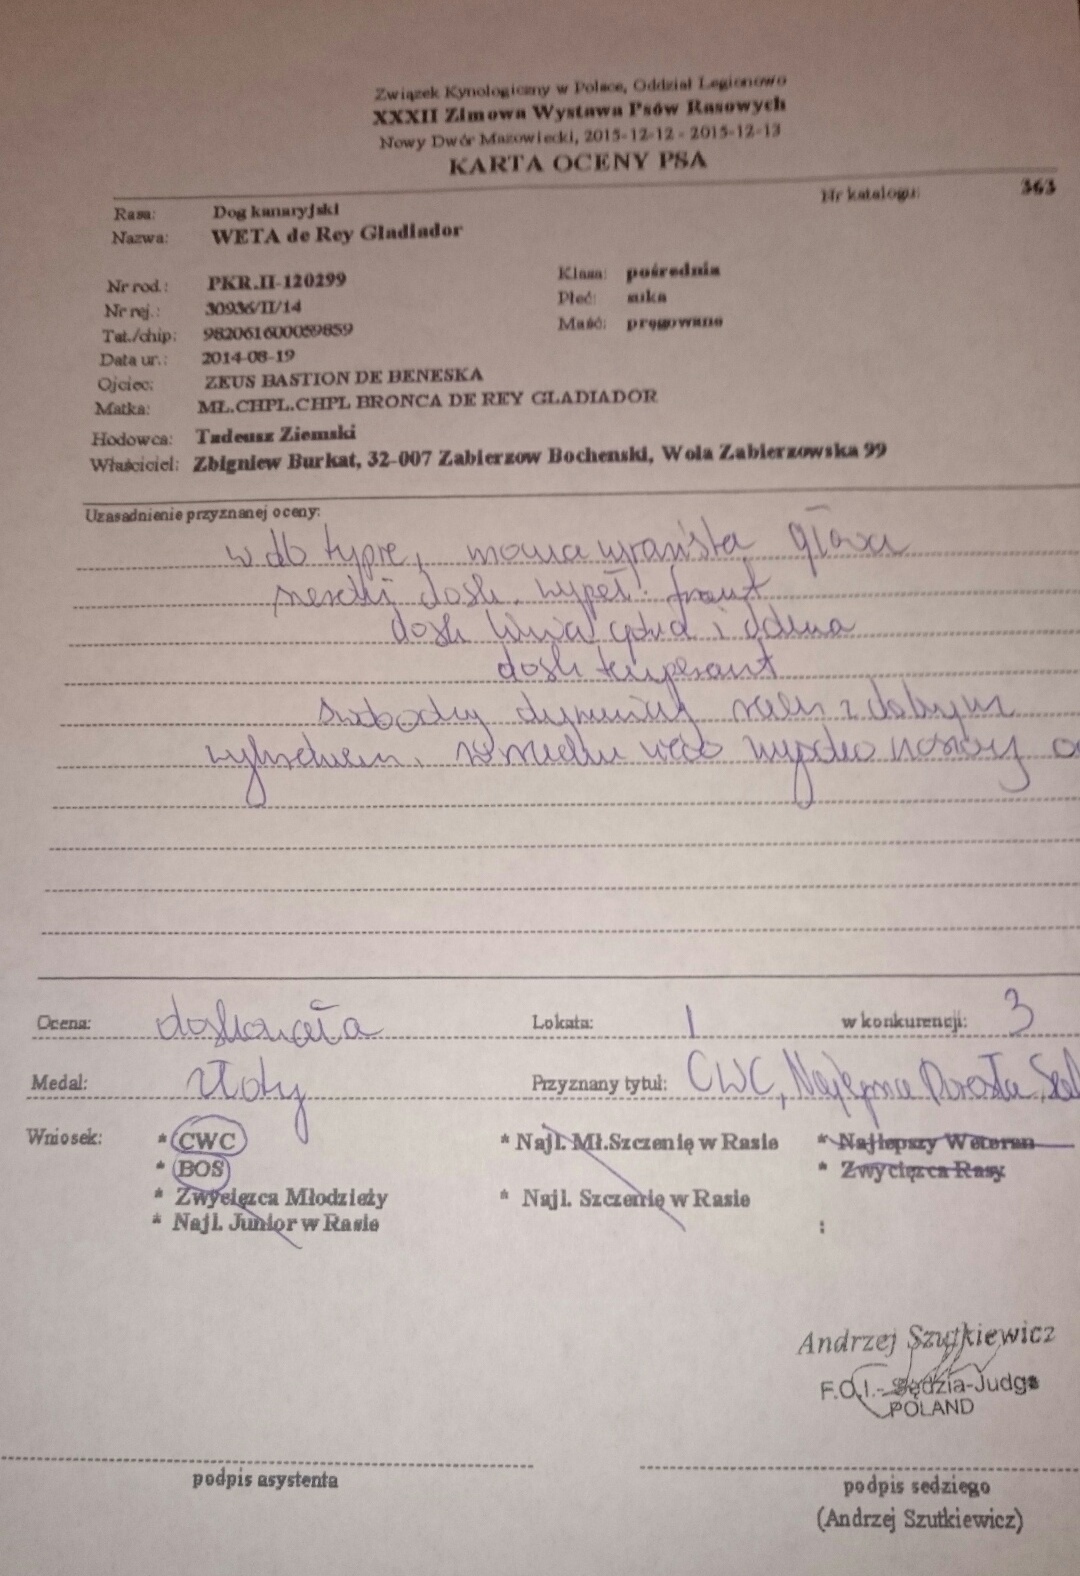 Związek Kynologiczny w Polsce, Oddział Legionowo
XXXII Zimowa Wystawa Psów Rasowych
Nowy Dwór Mazowiecki, 2015-12-12 - 2015-12-13
KARTA OCENY PSA
Nr katalogu: 363
Rasa: Dog kanaryjski
Nazwa: WETA de Rey Gladiador
Nr rod.: PKR.II-120299 Klasa: pośrednia
Nr rej.: 30936/II/14 Płeć: suka
Tat./chip: 982061600059859 Maść: pręgowane
Data ur.: 2014-08-19
Ojciec: ZEUS BASTION DE BENESKA
Matka: MŁ.CHPL.CHPL BRONCA DE REY GLADIADOR
Hodowca: Tadeusz Ziemski
Właściciel: Zbigniew Burkat, 32-007 Zabierzow Bochenski, Wola Zabierzowska 99
Uzasadnienie przyznanej oceny:
w db typie, mocna głowa
szeroki dosk. wypeł. front
dosk linia górna i dolna
dosk temperament
swobodny dynamiczny z dobrym
wykrokiem.
Ocena: doskonała Lokata: 1 w konkurencji: 3
Medal: złoty Przyznany tytuł: CWC, Najlepsza Dorosła
Wniosek: * CWC * Najl. Mł.Szczenię w Rasie * Najlepszy Weteran
* BOS * Zwycięzca Rasy
* Zwycięzca Młodzieży * Najl. Szczenię w Rasie
* Najl. Junior w Rasie :
Andrzej Szutkiewicz
F.C.I.- Sędzia-Judge
POLAND
podpis asystenta podpis sedziego
(Andrzej Szutkiewicz)